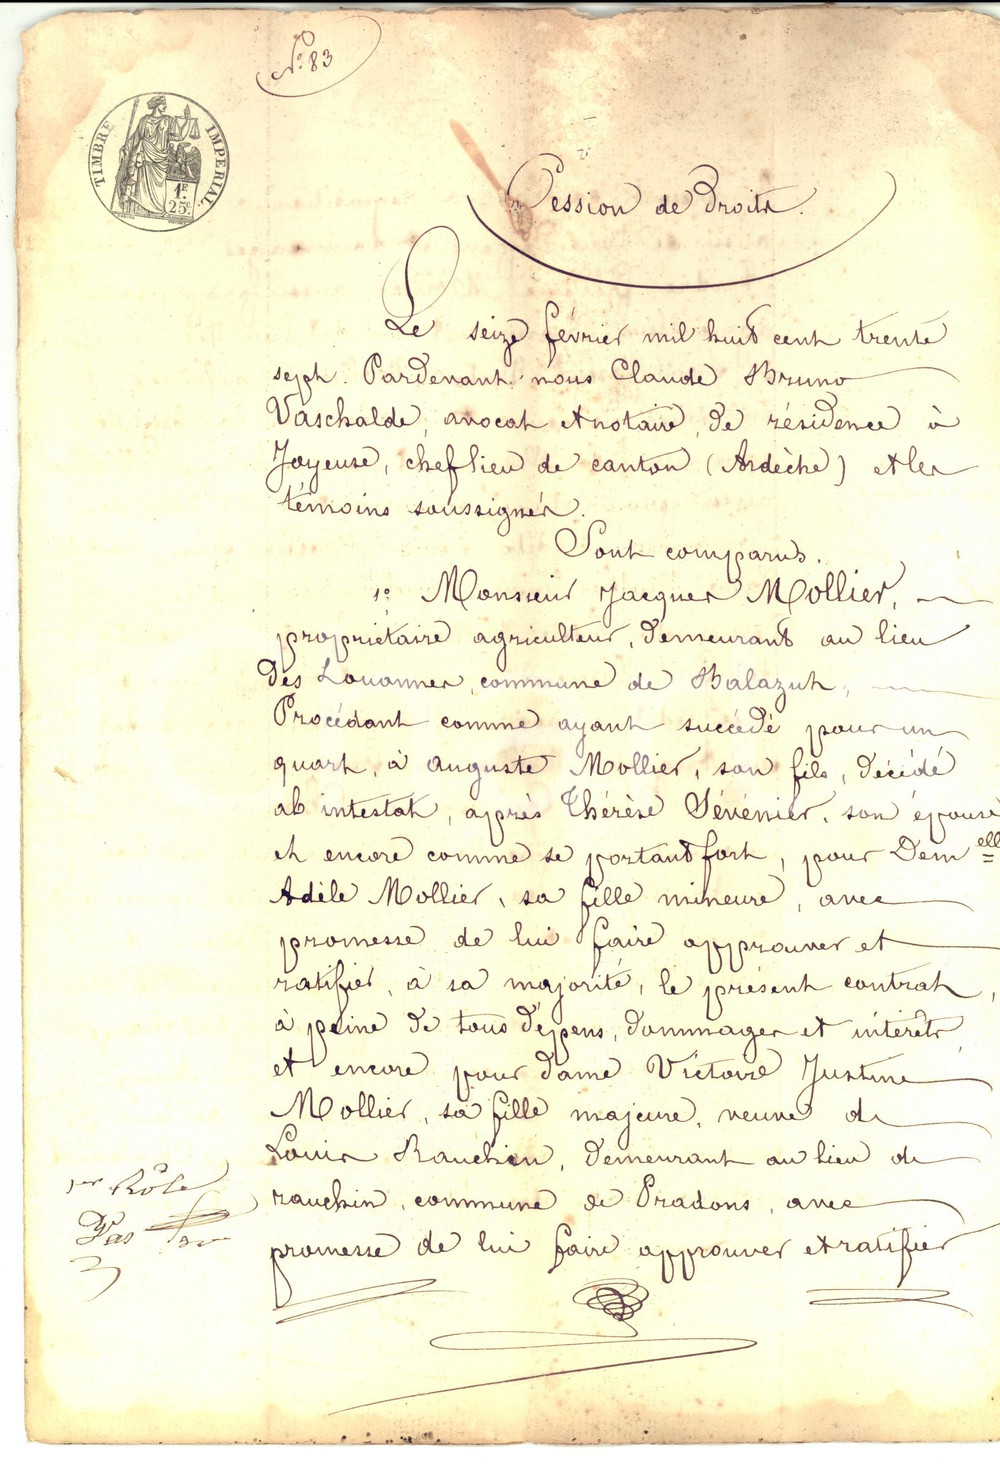 N.º 83
TIMBRE IMPERIAL.
1F.
25c
Cession de Droits.
Le seize février mil huit cent trente
sept. Pardevant nous Claude Bruno
Vaschalde, avocat et notaire, de résidence à
Joyeuse, chef lieu de canton (Ardèche) et les
témoins soussignés.
Sont comparus.
1º Monsieur Jacques Mollier,
propriétaire agriculteur, demeurant au lieu
des Louannes, commune de Balazut,
Procédant comme ayant succédé pour un
quart, à Auguste Mollier, son fils, décédé
ab intestat, après Thérèse Sévénier, son épouse
et encore comme se portant fort, pour Demelle
Adèle Mollier, sa fille mineure, avec
promesse de lui faire approuver et
ratifier, à sa majorité, le présent contrat,
à peine de tous dépens, dommages et intérêts,
et encore pour dame Victoire Justine
Mollier, sa fille majeure, veuve de
Louis Rauchin, demeurant au lieu de
rauchin, commune de Pradons, avec
promesse de lui faire approuver et ratifier
1er Rôle